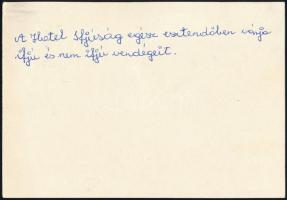 A Hotel Ifjúság egész esztendőben várja
ifjú és nem ifjú vendégeit.